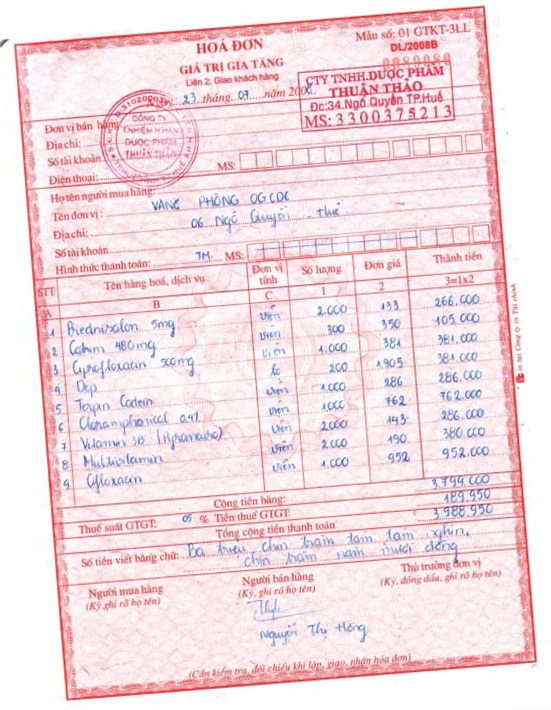 HOÁ ĐƠN
GIÁ TRỊ GIA TĂNG
Liên 2: Giao khách hàng
Mẫu số: 01 GTKT-3LL
DL/2008B
0080080
23 tháng 07 năm 200
CTY TNHH.DƯỢC PHẨM
THUẬN THẢO
Đc:34.Ngô Quyền.TP.Huế
MS: 3300375213
CÔNG TY
TNHIỆM HỮU HẠN
DƯỢC PHẨM
THUẬN THẢO
Đơn vị bán hàng
Địa chỉ:
Số tài khoản
Điện thoại:
MS:
Họ tên người mua hàng:
Tên đơn vị: VĂNG PHÒNG OGCDC
Địa chỉ: 06 Ngô Quyền - Huế
Số tài khoản
Hình thức thanh toán: TM MS:
STT Tên hàng hoá, dịch vụ Đơn vị tính Số lượng Đơn giá Thành tiền
A B C 1 2 3=1x2
1 Prednisolon 5mg viên 2.000 133 266.000
2 Cotrim 480mg viên 300 350 105.000
3 Ciprofloxacin 500mg viên 1.000 381 381.000
4 Dep lọ 200 1905 381.000
5 Terpin Codein viên 1.000 286 286.000
6 Cloramphenicol 0,4% 1.000 762 762.000
7 Vitamin 3B viên 2.000 143 286.000
8 Multivitamin viên 2.000 190 380.000
9 Ofloxacin viên 1.000 952 952.000
Cộng tiền hàng: 3.799.000
Thuế suất GTGT: 05 % Tiền thuế GTGT: 189.950
Tổng cộng tiền thanh toán 3.988.950
Số tiền viết bằng chữ: Ba triệu chín trăm tám tám nghìn,
chín trăm năm mươi đồng
Người mua hàng Người bán hàng Thủ trưởng đơn vị
(Ký, ghi rõ họ tên) (Ký, ghi rõ họ tên) (Ký, đóng dấu, ghi rõ họ tên)
Nguyễn Thị Hồng
(Cần kiểm tra, đối chiếu khi lập, giao, nhận hóa đơn)